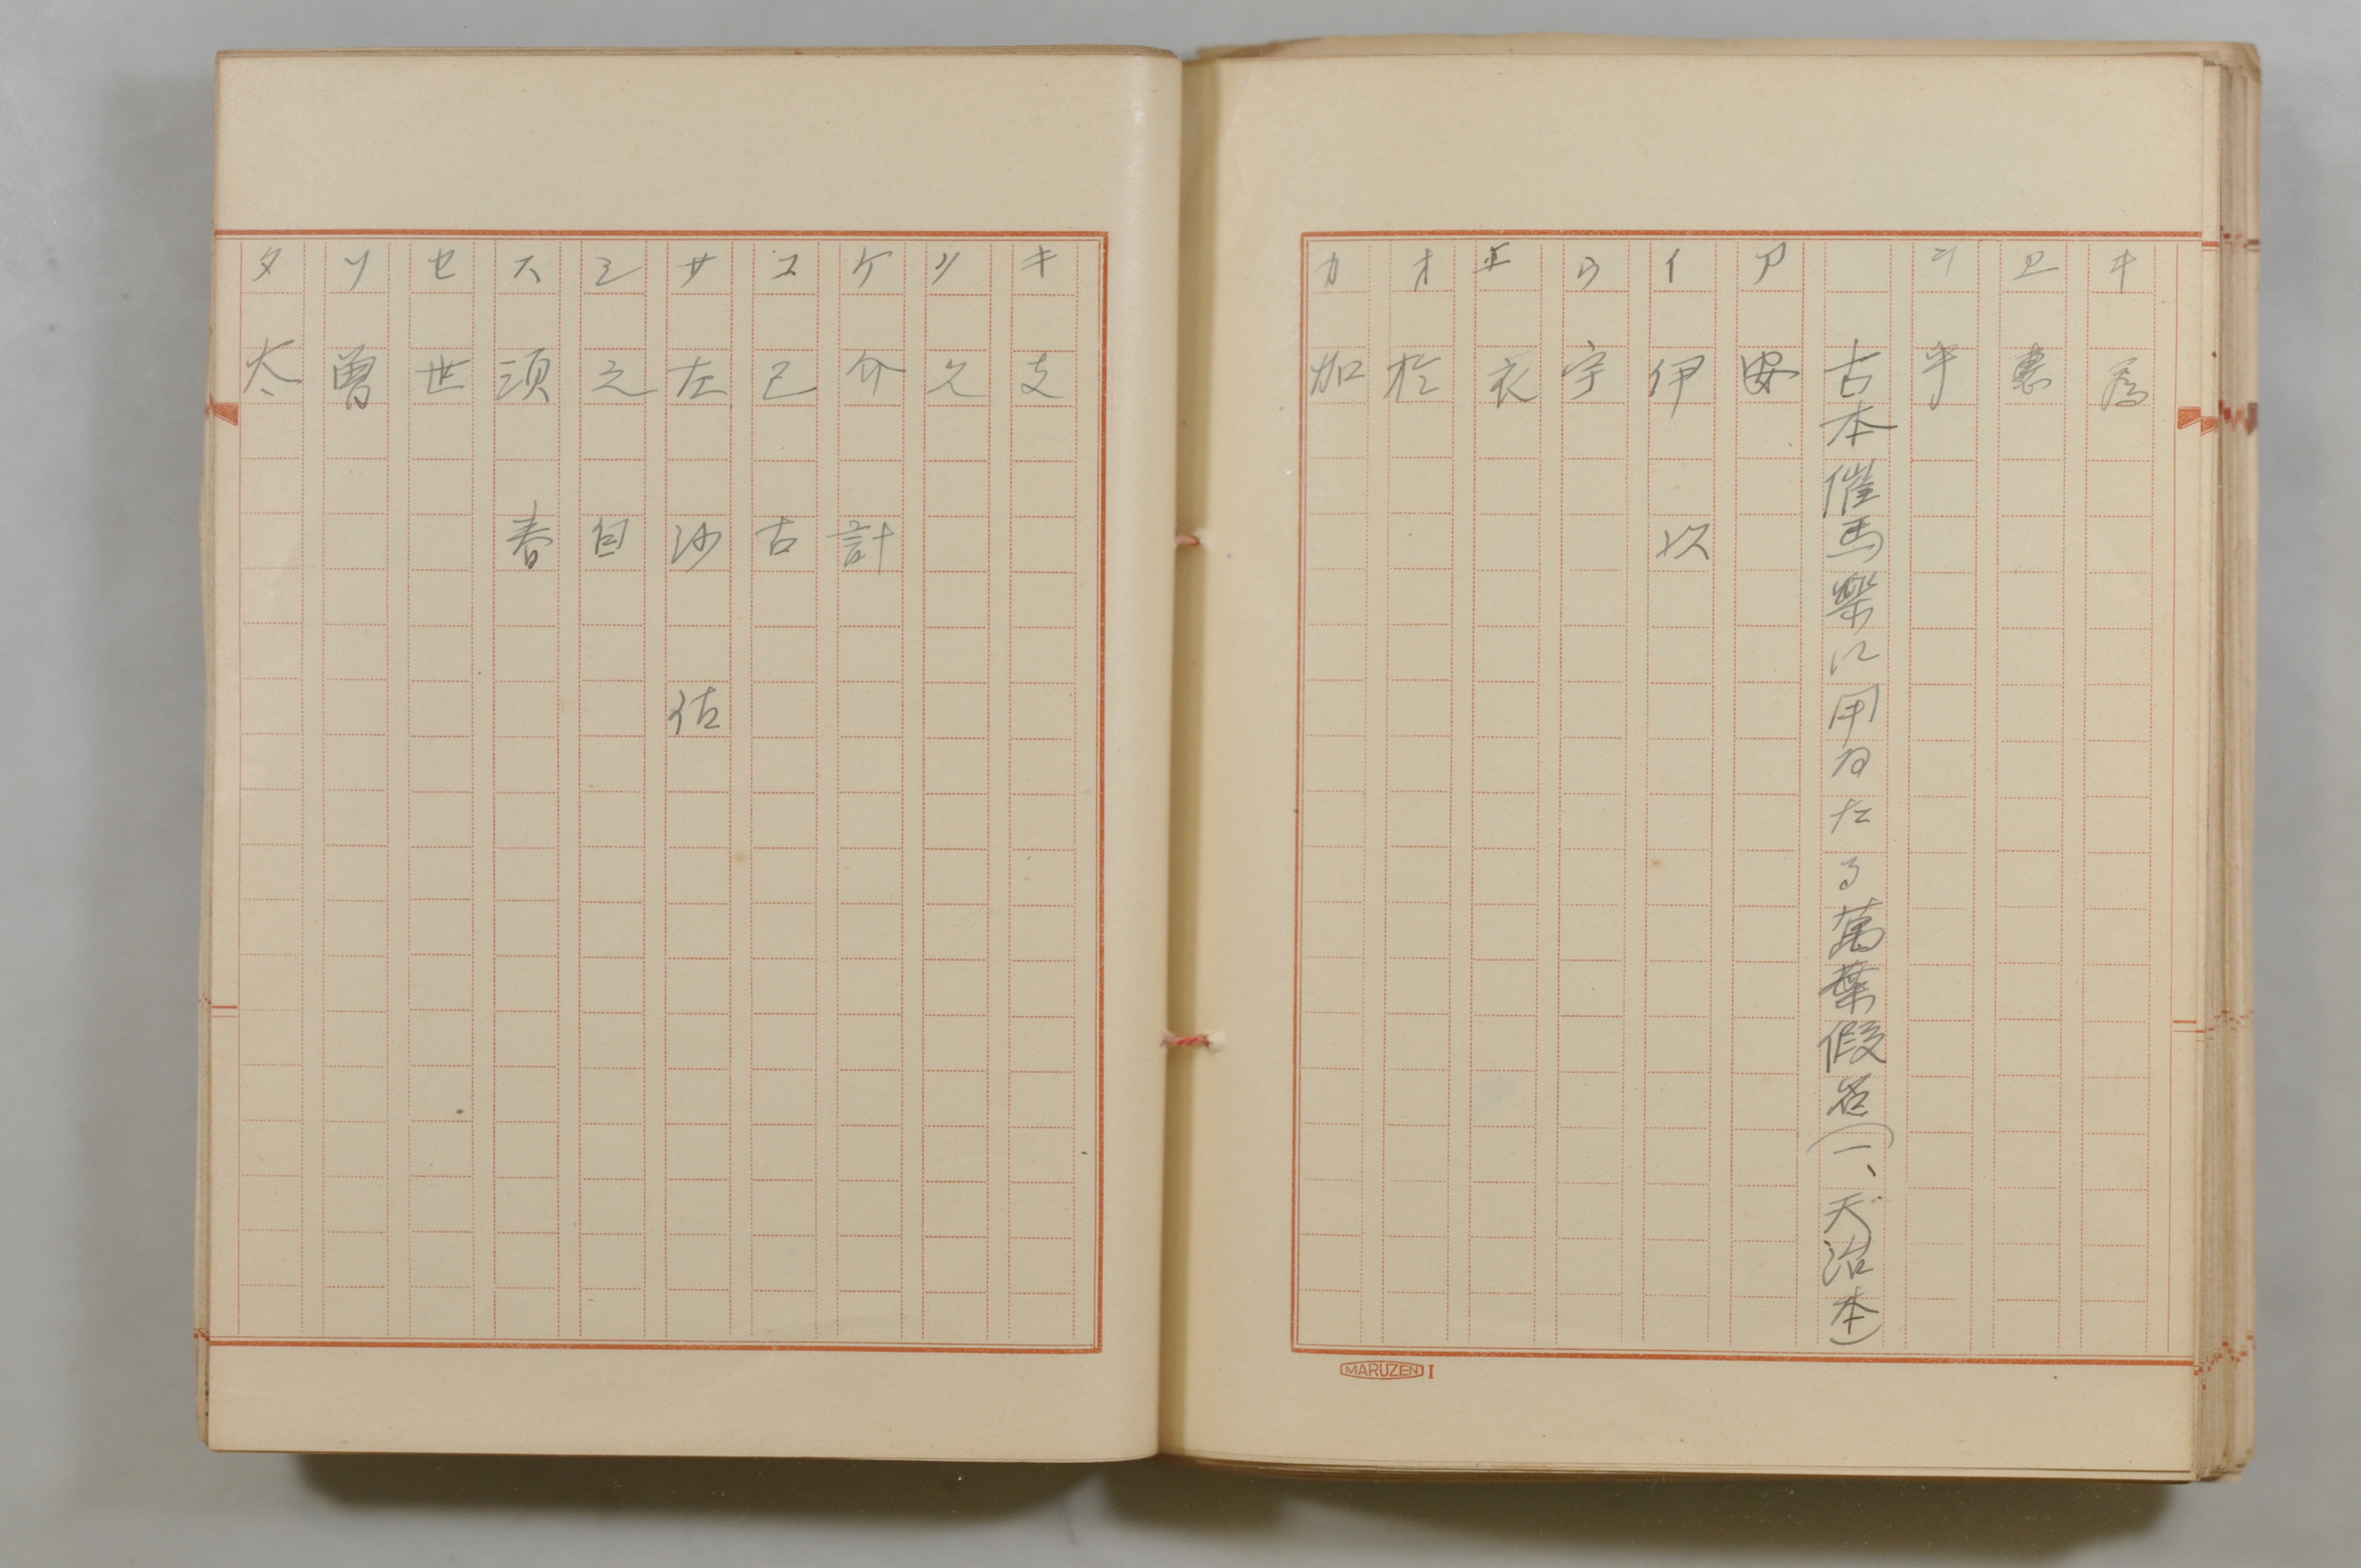 ヰ 為
ヱ 恵
ヲ 乎
古本催馬楽に用ゐたる萬葉假名(一、天治本)
ア 安
イ 伊 以
ウ 宇
エ 衣
オ 於
カ 加
キ 支
ク 久
ケ 介 計
コ 己 古
サ 左 沙 佐
シ 之 自
ス 須 春
セ 世
ソ 曽
タ 太
MARUZEN I